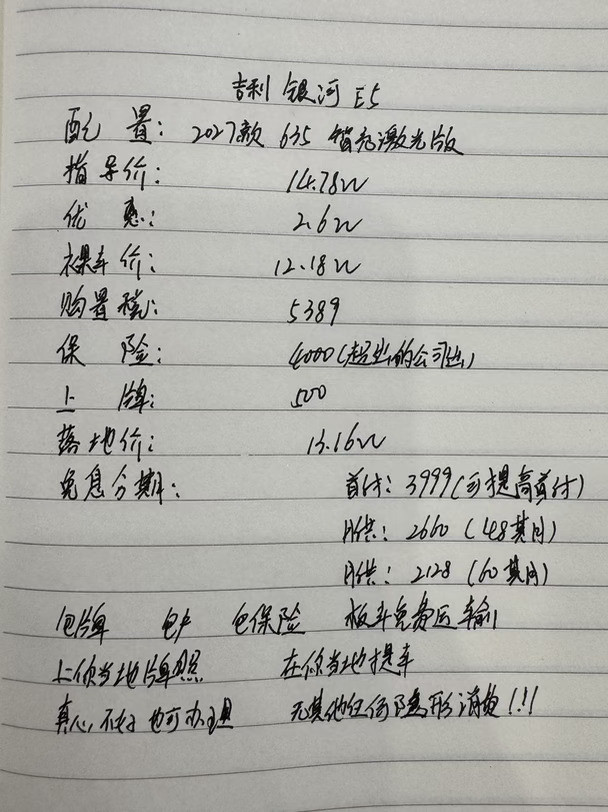 吉利 银河 E5
配 置: 2027款 635 智尧激光版
指导价: 14.78w
优 惠: 2.6w
裸车价: 12.18w
购置税: 5389
保 险: 4000(超出的公司出)
上 牌: 500
落地价: 13.16w
免息分期: 首付: 3999(可提高首付)
月供: 2660 (48期月)
月供: 2128 (60期月)
包牌 包户 包保险 板车免费运输
上你当地牌照 在你当地提车
真心, 不好 也可办理 无其他任何隐形消费!!!